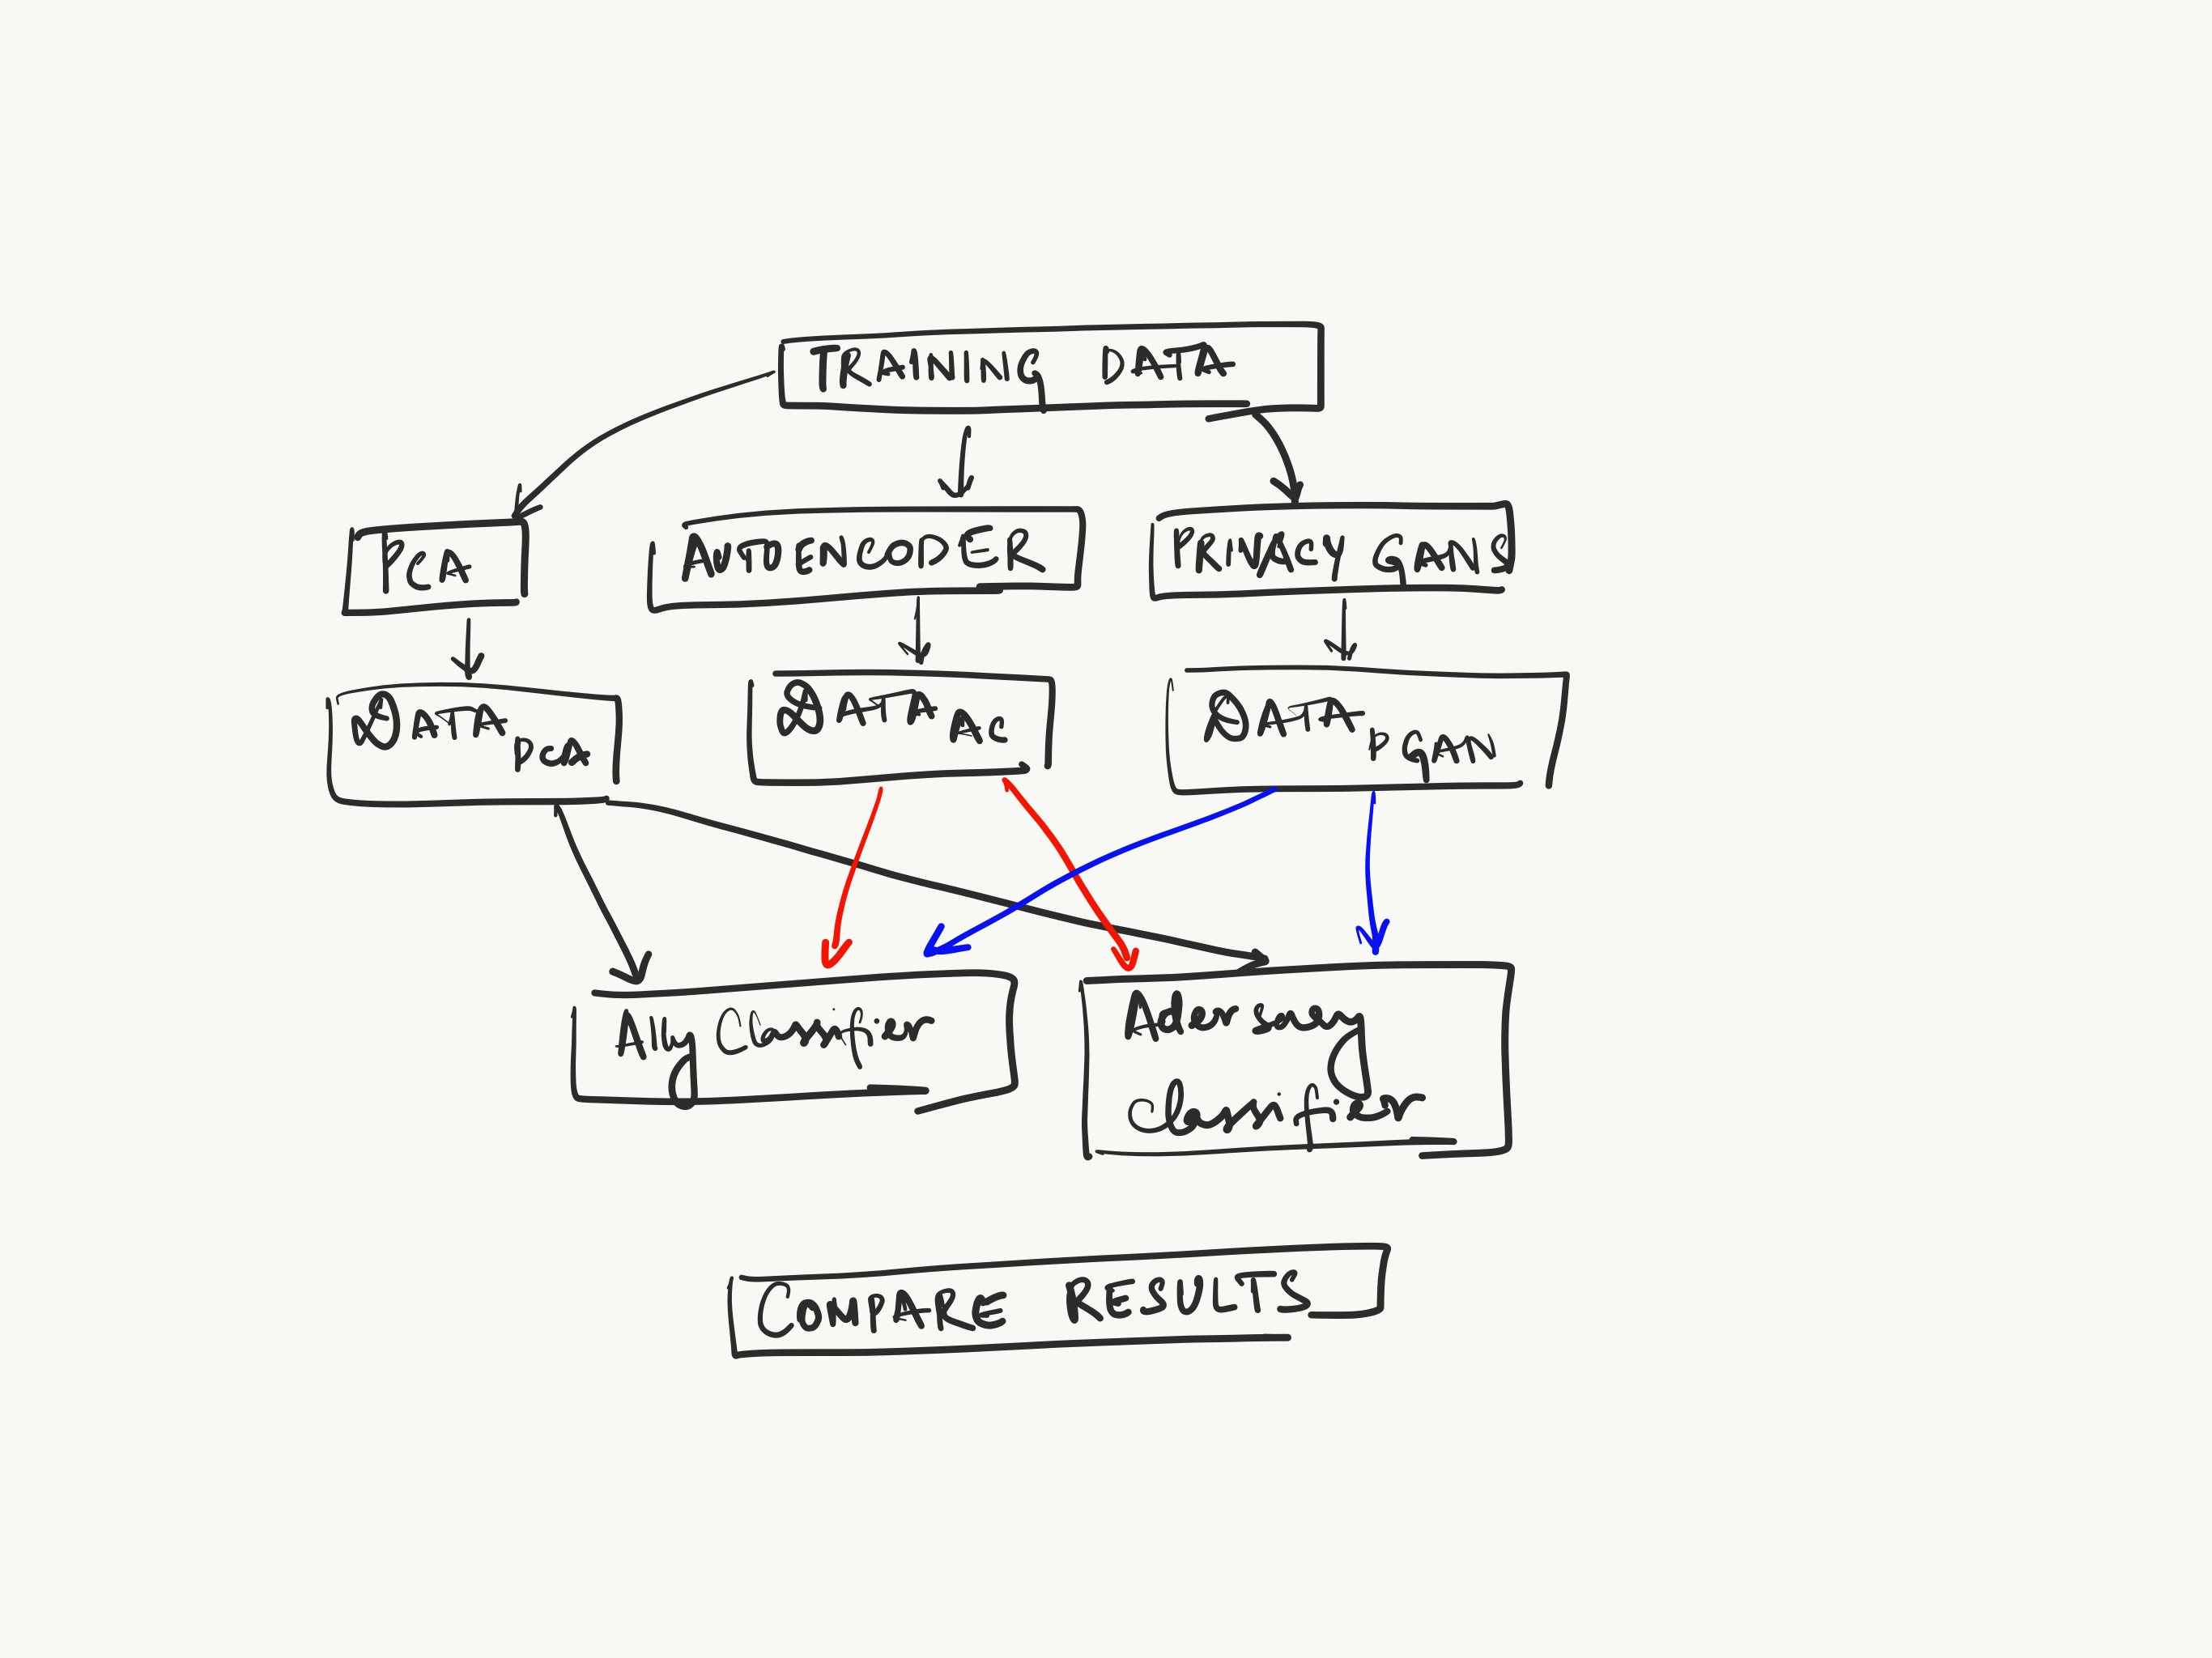 TRAINING DATA
PCA
AUTOENCODER
PRIVACY GANS
DATA PCA
DATA AC
DATA PGAN
Ally Classifier
Adversary
Classifier
COMPARE RESULTS